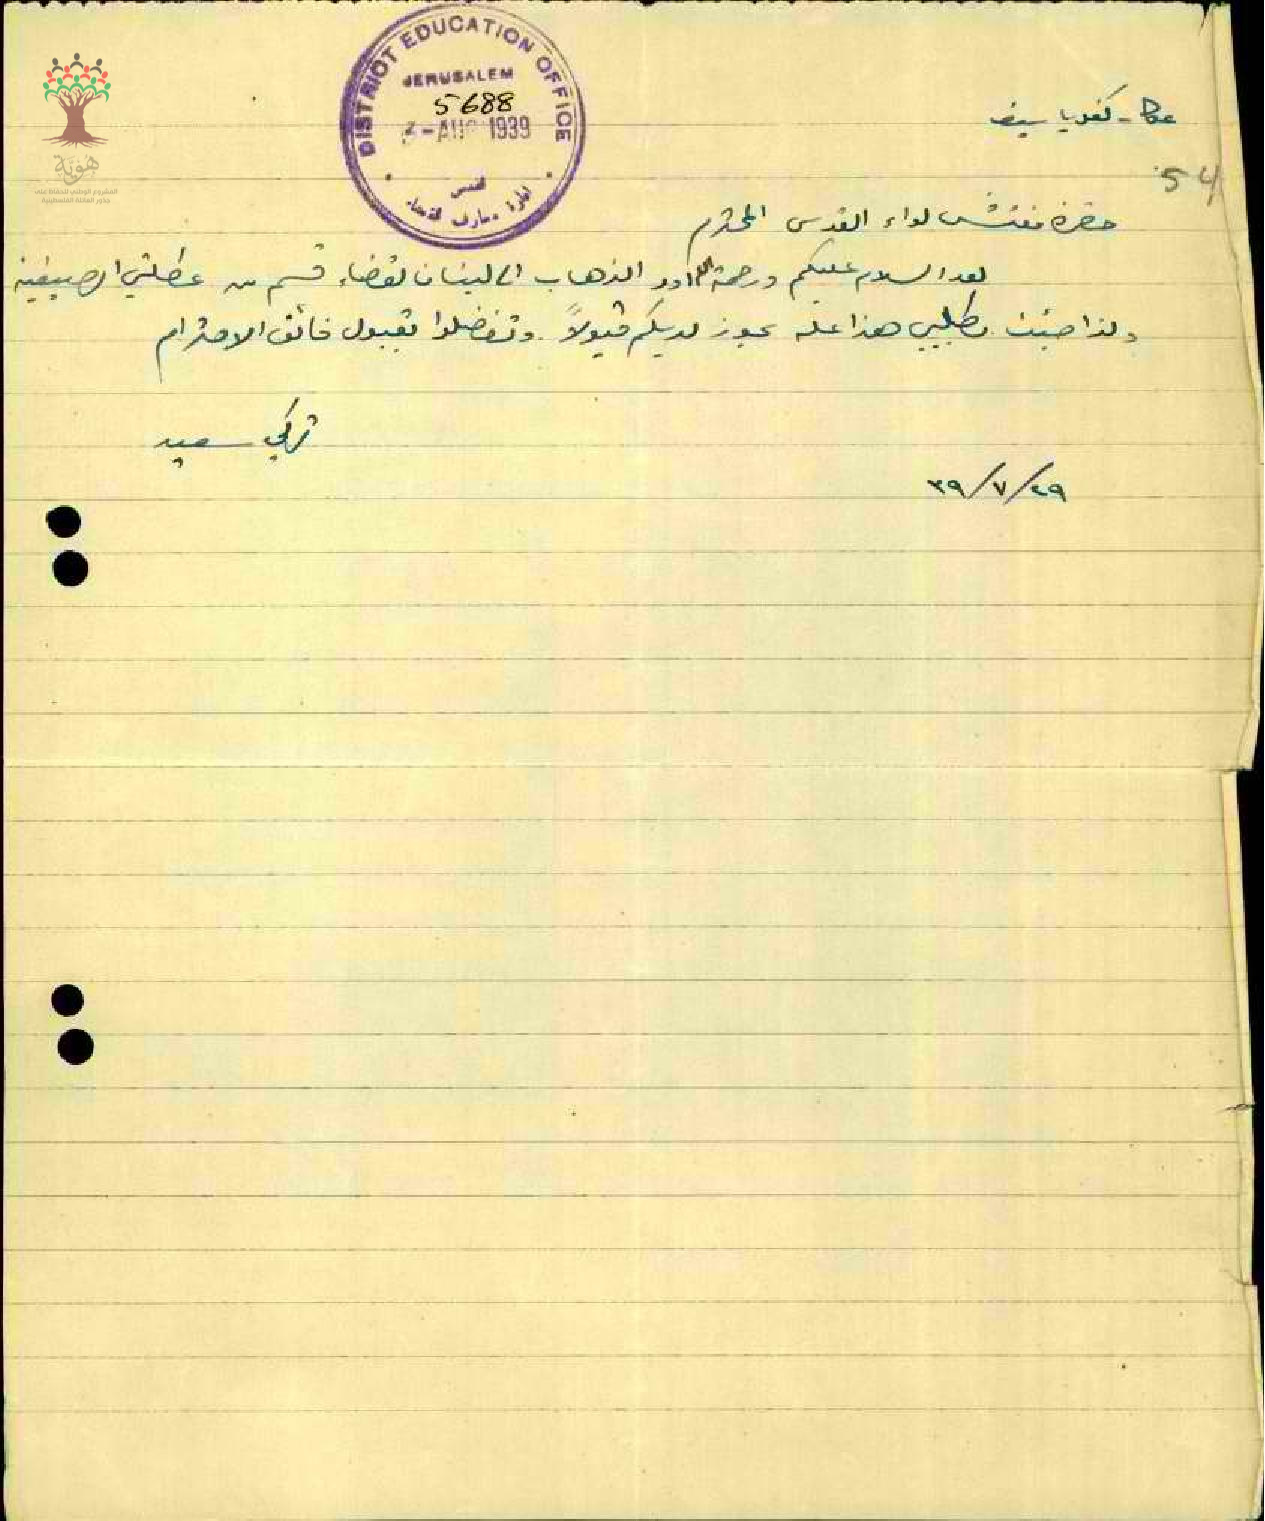 DISTRICT EDUCATION OFFICE
JERUSALEM
5688
3 - AUG 1939
القدس
ادارة معارف لواء
هوية
المشروع الوطني للحفاظ على
جذور العائلة الفلسطينية
عكا - كفر ياسيف
54
حضرة مفتش لواء القدس المحترم
بعد السلام عليكم ورحمة الله اود الذهاب الى لبنان لقضاء قسم من عطلتي الصيفية
ولذا جئت بطلبي هذا عله يحوز لديكم قبولاً. وتفضلوا بقبول فائق الاحترام
تركي سعيد
٢٩/٧/٣٩